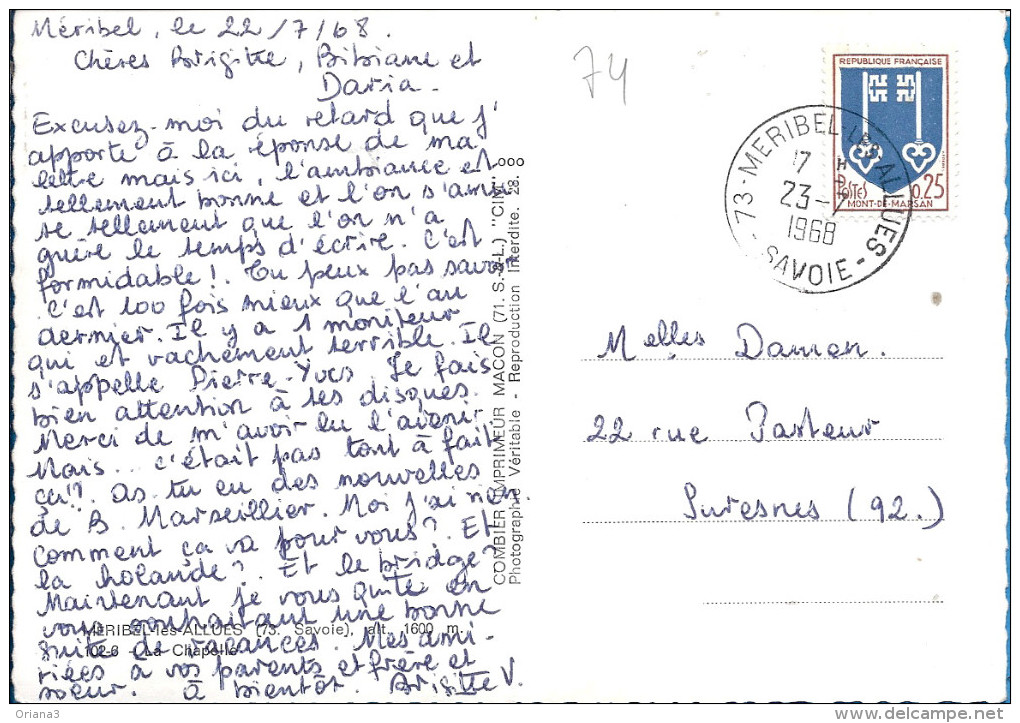 Méribel, le 22/7/68.
Chères Brigitte, Bibiane et
Daria -
Excusez-moi du retard que j'
apporte à la réponse de ma
lettre mais ici, l'ambiance est
tellement bonne et l'on s'amu
se tellement que l'on n'a
guère le temps d'écrire. C'est
formidable! Tu peux pas savoir
c'est 100 fois mieux que l'an
dernier. Il y a 1 moniteur
qui et vachement terrible. Il
s'appelle Pierre-Yves. Je fais
bien attention à tes disques.
Merci de m'avoir lu l'avenir
Mais... c'était pas tout à fait
ça!? As tu eu des nouvelles
de B. Marseillier. Moi j'ai non
comment ça va pour vous? Et
la holande? Et le bridge?
Maintenant je vous quitte en
vous souhaitant une bonne
suite de vacances. Mes ami-
tiées à vos parents et frère et
soeur. à bientôt. Brigitte V.
MERIBEL-les-ALLUES (73. Savoie), alt. 1600 m.
102-6 - La Chapelle
COMBIER IMPRIMEUR MACON (71. S.-&-L.) "CIM"
Photographie Véritable - Reproduction Interdite. 28.
74
REPUBLIQUE FRANÇAISE
POSTES
0.25
MONT-DE-MARSAN
73-MERIBEL-LES-ALLUES
17 H
23-7
1968
SAVOIE
Melles Damon.
22 rue Pasteur
Suresnes (92.)
Oriana3
delcampe.net